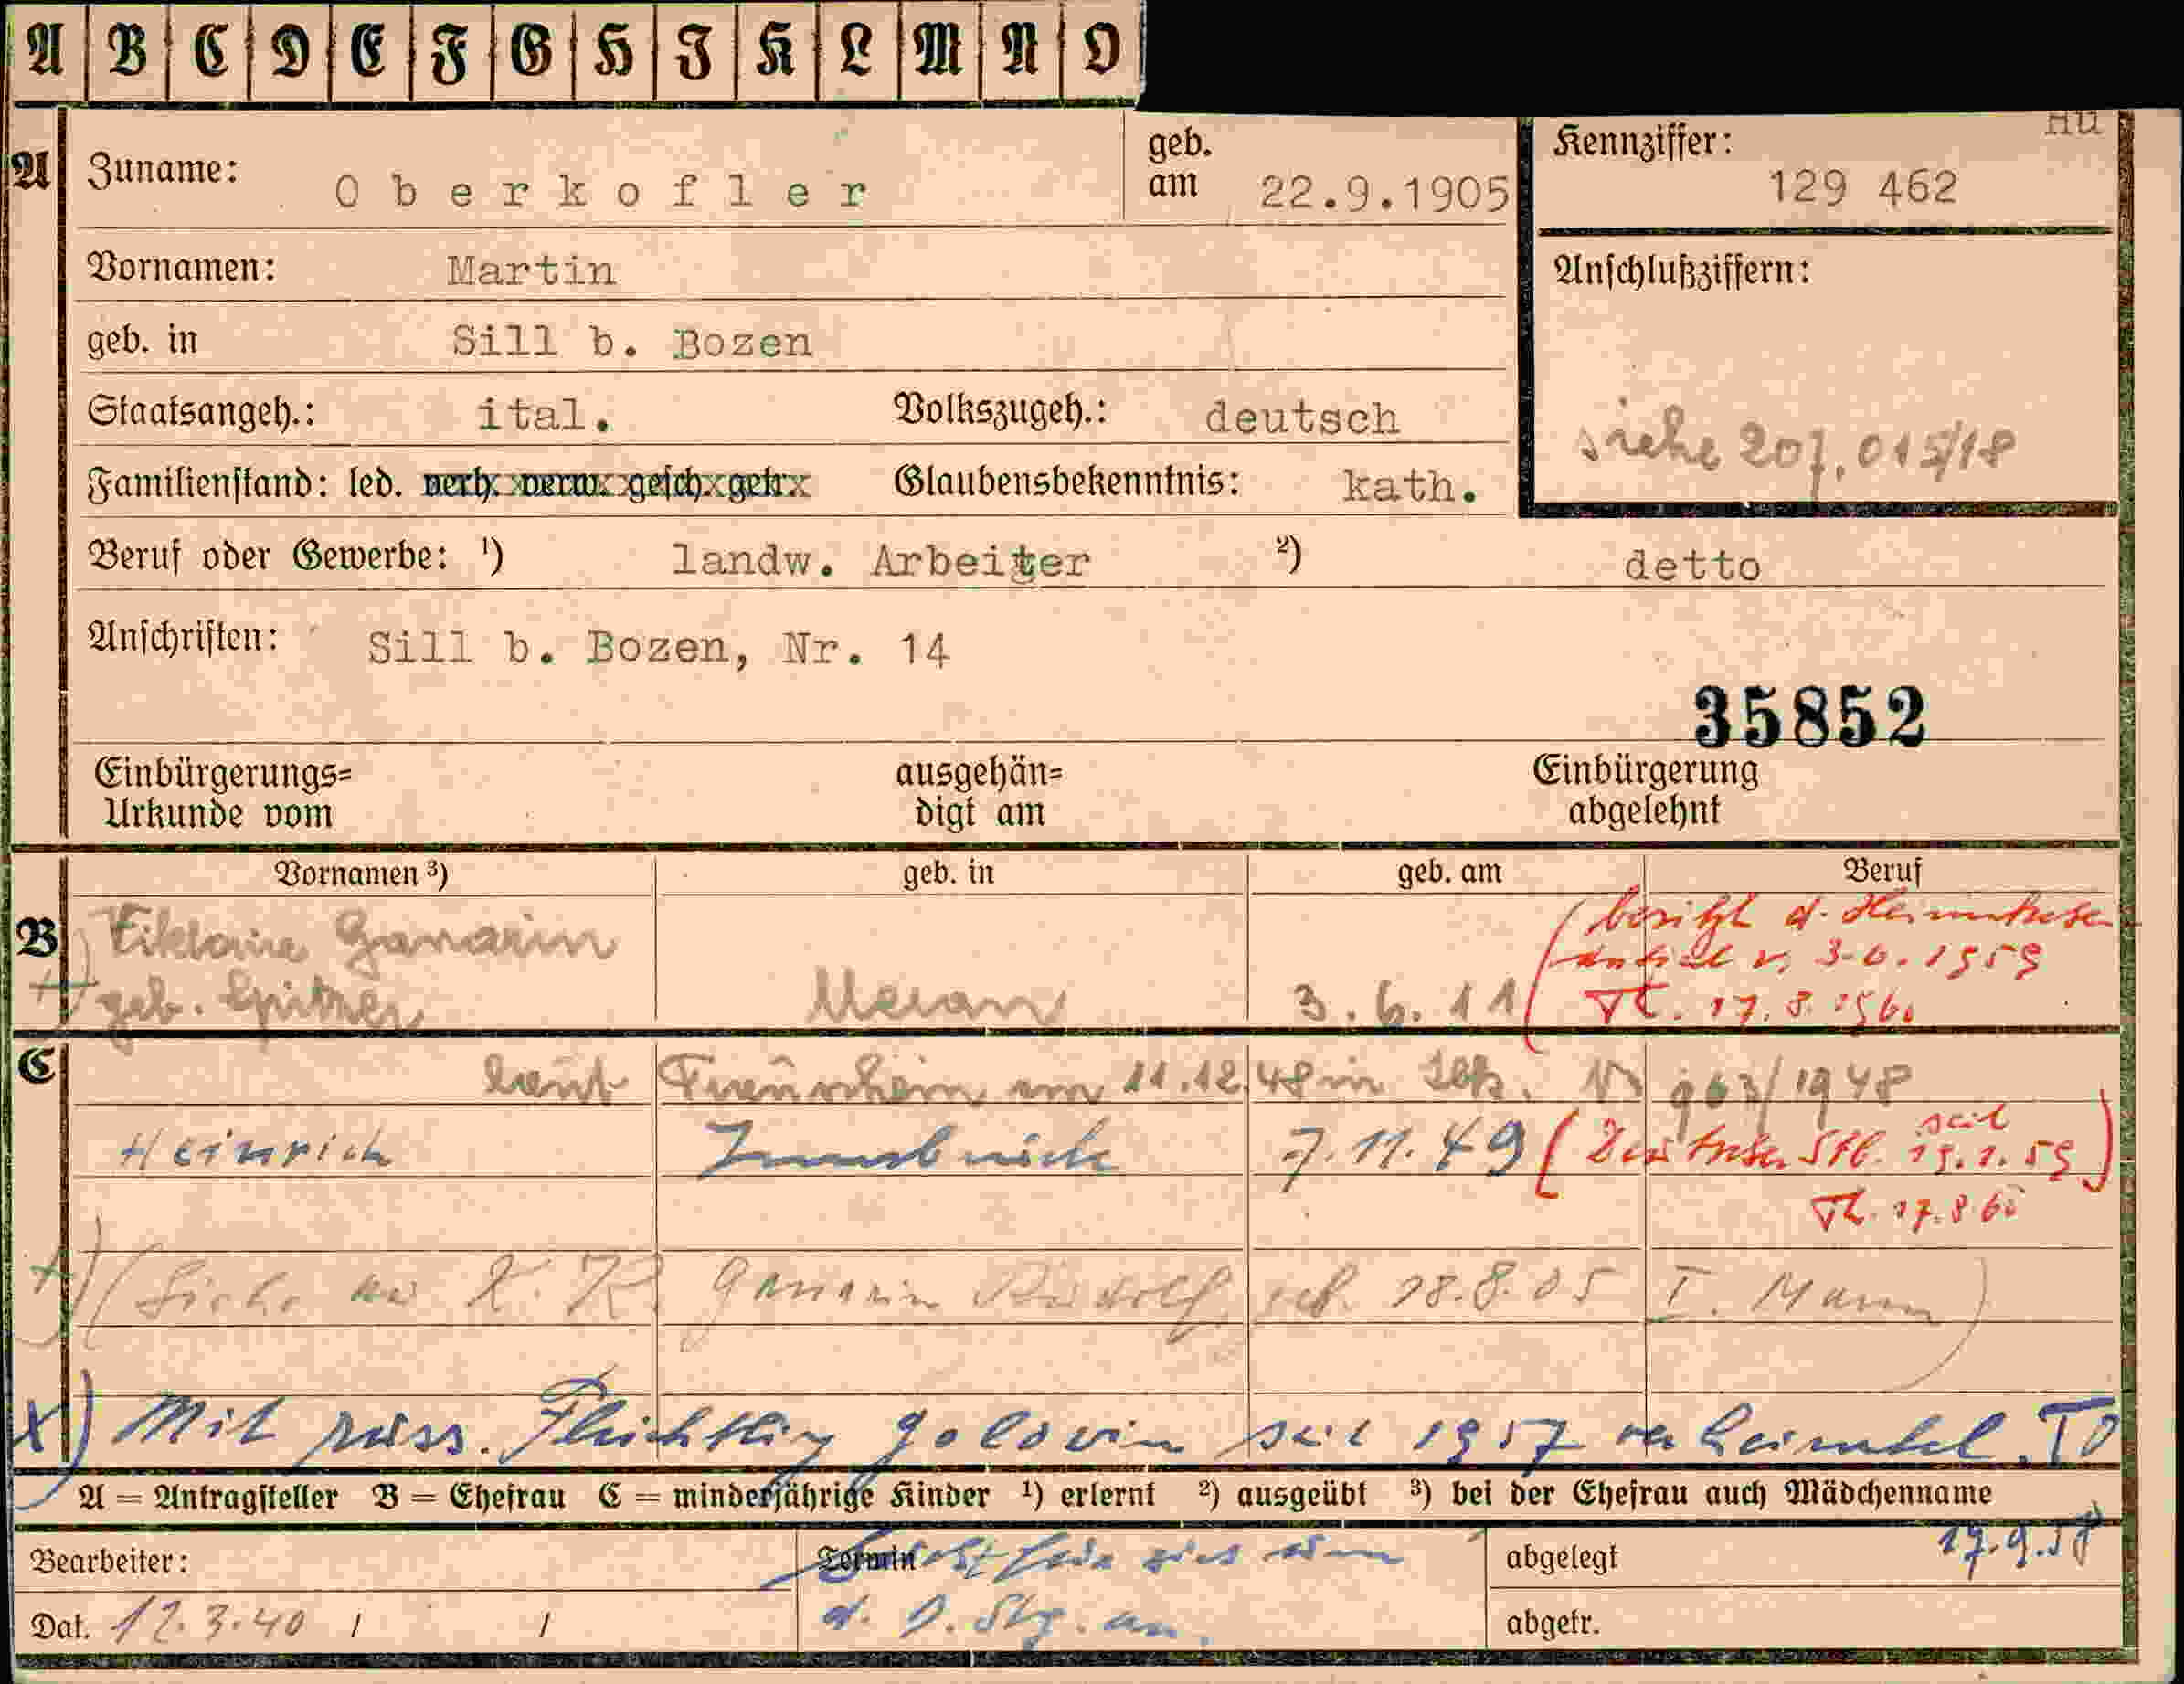 A B C D E F G H I K L M N O
A Zuname: Oberkofler geb. am 22.9.1905 Kennziffer: 129 462 Hu
Vornamen: Martin Anschlußziffern:
geb. in Sill b. Bozen
Staatsangeh.: ital. Volkszugeh.: deutsch siehe 207.015/18
Familienstand: led. verh. verw. gesch. getr. Glaubensbekenntnis: kath.
Beruf oder Gewerbe: ¹) landw. Arbeiter ²) detto
Anschriften: Sill b. Bozen, Nr. 14
35852
Einbürgerungs= ausgehän= Einbürgerung
Urkunde vom digt am abgelehnt
Vornamen ³) geb. in geb. am Beruf
B Ganarin (besitzt d.
geb. Meran 3.6.11 v. 3.6.1959
17.8.1960
C laut am 11.12.48 in 963/1948
Heinrich Innsbruck 7.11.49 ( seit 19.1.59)
17.8.60
(Siehe Ganarin Rudolf, geb. 18.8.05 I. Mann)
x) Mit russ. Flüchtling Golovin seit 1957 verheiratet.
A = Antragsteller B = Ehefrau C = minderjährige Kinder ¹) erlernt ²) ausgeübt ³) bei der Ehefrau auch Mädchenname
Bearbeiter: Termin abgelegt 17.9.58
Dat. 12.3.40 / / d. D. Stg. an. abgetr.